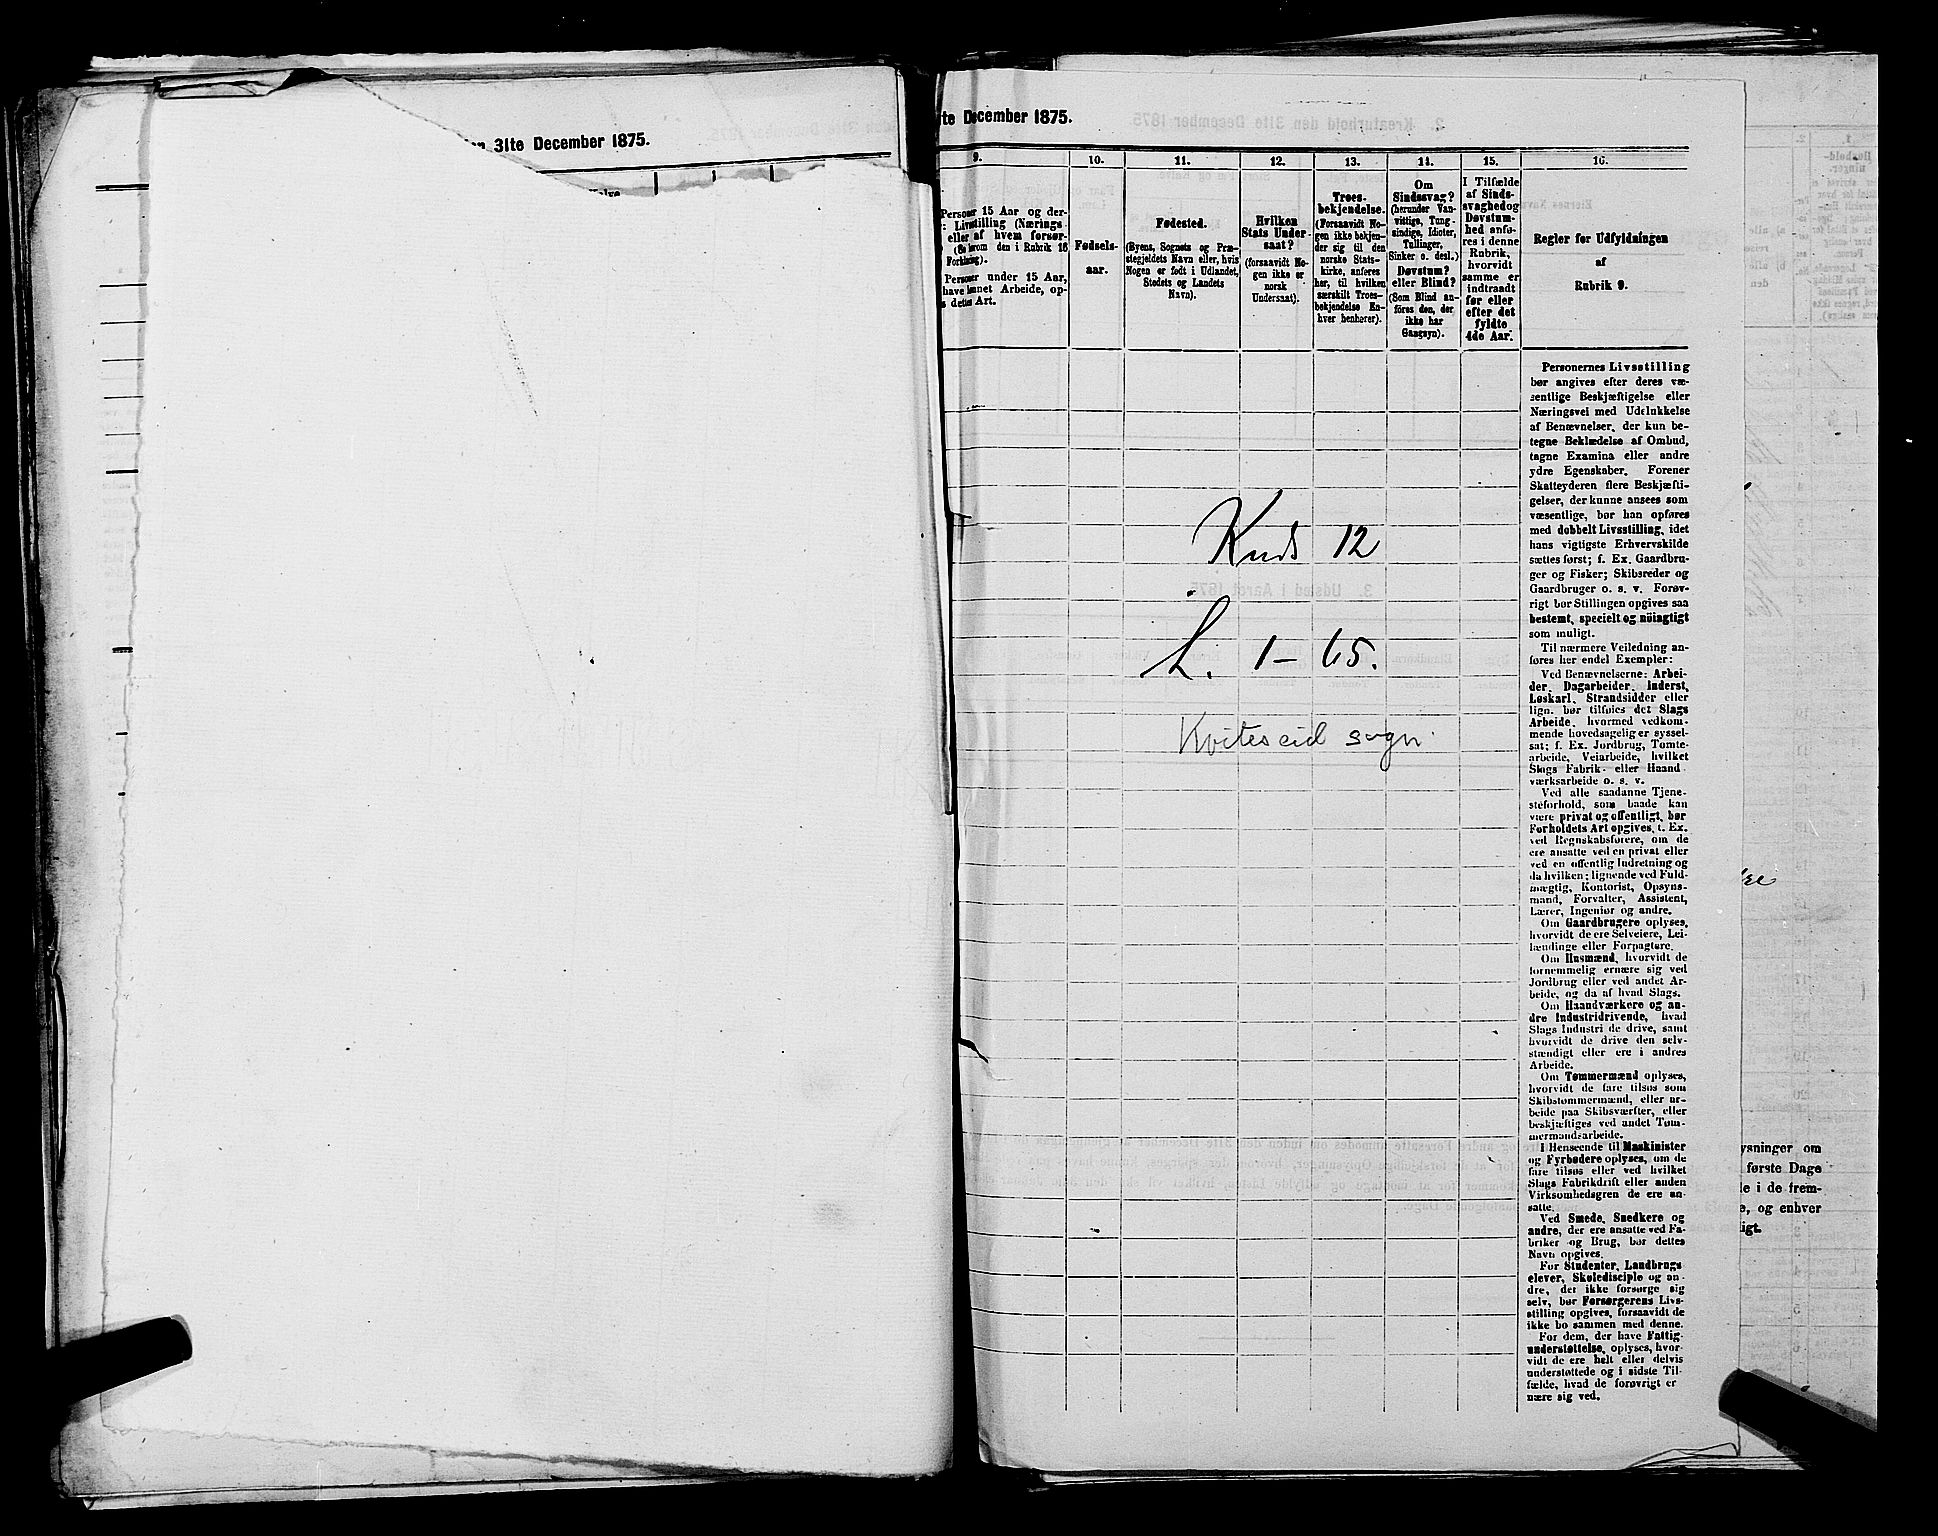 31te December 1875.
te December 1875.
9.
10.
11.
12.
13.
14.
15.
16.
Personer 15 Aar og der-
: Livsstilling (Nærings-
eller af hvem forsør-
(Se herom den i Rubrik 16
Forklaring).
Personer under 15 Aar,
have lønnet Arbeide, op-
s dettes Art.
Fødsels-
aar.
Fødested.
(Byens, Sognets og Præ-
stegjeldets Navn eller, hvis
Nogen er født i Udlandet,
Stedets og Landets
Navn).
Hvilken
Stats Under-
saat?
(forsaavidt No-
gen ikke er
norsk
Undersaat).
Troes-
bekjendelse.
(Forsaavidt No-
gen ikke bekjen-
der sig til den
norske Stats-
kirke, anføres
her, til hvilken
særskilt Troes-
bekjendelse En-
hver henhører).
Om
Sindssvag?
(herunder Van-
vittige, Tung-
sindige, Idioter,
Tullinger,
Sinker o. desl.)
Døvstum?
eller Blind?
(Som Blind an-
føres den, der
ikke har
Gangsyn).
I Tilfælde
af Sinds-
svaghed og
Døvstum-
hed anfø-
res i denne
Rubrik,
hvorvidt
samme er
indtraadt
før eller
efter det
fyldte
4de Aar.
Regler for Udfyldningen
af
Rubrik 9.
Personernes Livsstilling
bør angives efter deres væ-
sentlige Beskjæftigelse eller
Næringsvei med Udelukkelse
af Benævnelser, der kun be-
tegne Beklædelse af Ombud,
tagne Examina eller andre
ydre Egenskaber. Forener
Skatteyderen flere Beskjæfti-
gelser, der kunne ansees som
væsentlige, bør han opføres
med dobbelt Livsstilling, idet
hans vigtigste Erhvervskilde
sættes først; f. Ex. Gaardbru-
ger og Fisker; Skibsreder og
Gaardbruger o. s. v. Forøv-
rigt bør Stillingen opgives saa
bestemt, specielt og nøiagtigt
som muligt.
Til nærmere Veiledning an-
føres her endel Exempler:
Ved Benævnelserne: Arbei-
der, Dagarbeider, Inderst,
Løskarl, Strandsidder eller
lign. bør tilføies det Slags
Arbeide, hvormed vedkom-
mende hovedsagelig er syssel-
sat; f. Ex. Jordbrug, Tomte-
arbeide, Veiarbeide, hvilket
Slags Fabrik- eller Haand-
værksarbeide o. s. v.
Ved alle saadanne Tjene-
steforhold, som baade kan
være privat og offentligt, bør
Forholdets Art opgives, t. Ex.
ved Regnskabsførere, om de
ere ansatte ved en privat eller
ved en offentlig Indretning og
da hvilken; lignende ved Fuld-
mægtig, Kontorist, Opsyns-
mand, Forvalter, Assistent,
Lærer, Ingeniør og andre.
Om Gaardbrugere oplyses,
hvorvidt de ere Selveiere, Lei-
lændinge eller Forpagtere.
Om Husmænd, hvorvidt de
fornemmelig ernære sig ved
Jordbrug eller ved andet Ar-
beide, og da af hvad Slags.
Om Haandværkere og an-
dre Industridrivende, hvad
Slags Industri de drive, samt
hvorvidt de drive den selv-
stændigt eller ere i andres
Arbeide.
Om Tømmermænd oplyses,
hvorvidt de fare tilsøs som
Skibstømmermænd, eller ar-
beide paa Skibsværfter, eller
beskjæftiges ved andet Tøm-
mermandsarbeide.
I Henseende til Maskinister
og Fyrbødere oplyses, om de
fare tilsøs eller ved hvilket
Slags Fabrikdrift eller anden
Virksomhedsgren de ere an-
satte.
Ved Smede, Snedkere og
andre, der ere ansatte ved Fa-
briker og Brug, bør dettes
Navn opgives.
For Studenter, Landbrugs-
elever, Skoledisciple og an-
dre, der ikke forsørge sig
selv, bør Forsørgerens Livs-
stilling opgives, forsaavidt de
ikke bo sammen med denne.
For dem, der have Fattig-
understøttelse, oplyses, hvor-
vidt de ere helt eller delvis
understøttede og i sidste Til-
fælde, hvad de forøvrigt er-
nære sig ved.
Knds 12
L. 1-65.
Kviteseid sogn.
ysninger om
første Dage
le i de frem-
e, og enhver
igt.